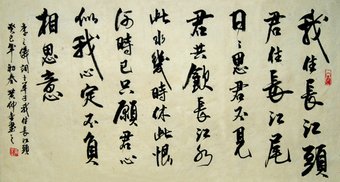 我住長江頭
君住長江尾
日日思君不見
君共飲長江水
此水幾時休此恨
何時已只願君心
似我心定不負
相思意
李之儀詞卜算子我住長江頭
癸巳年初春黃仲